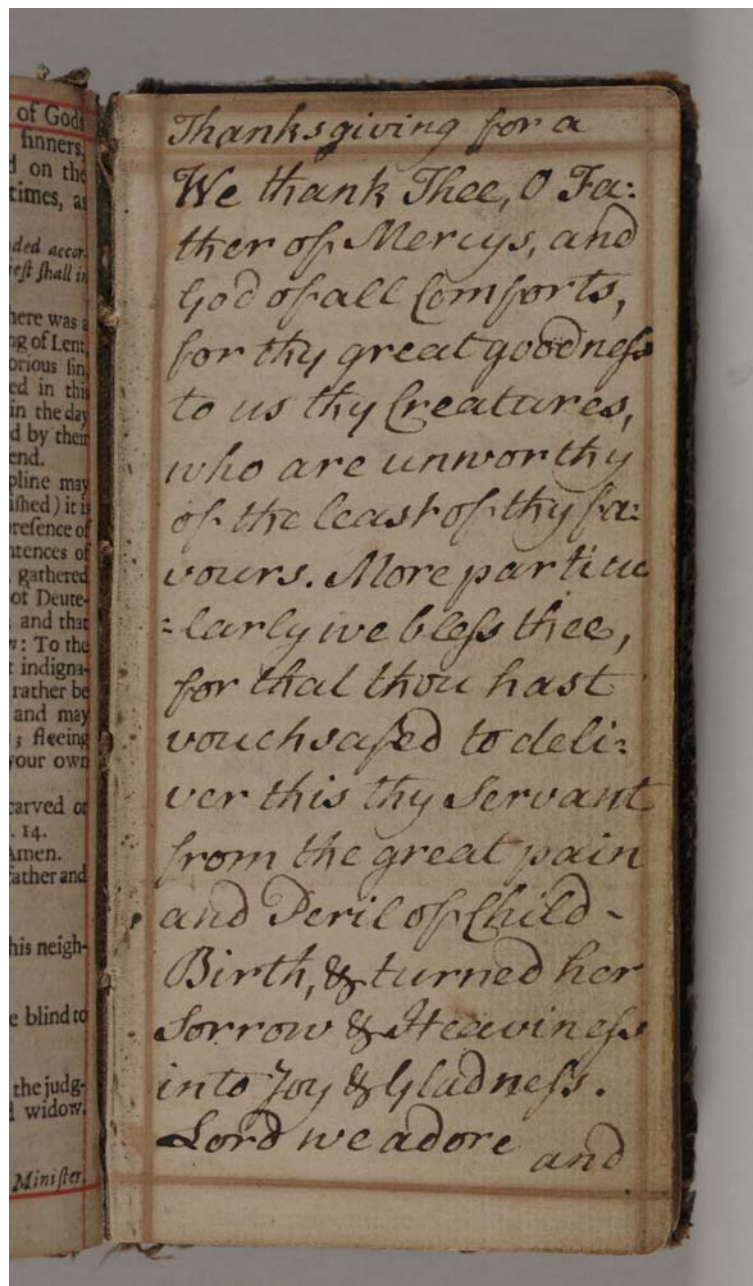 of Gods
sinners,
on the
times, as
ded accor-
iest shall in
here was a
ng of Lent,
orious sin,
ed in this
in the day
d by their
end.
pline may
ished) it is
presence of
ntences of
gathered
of Deute-
and that
n: To the
t indigna-
rather be
and may
; fleeing
your own
carved or
. 14.
Amen.
father and
his neigh-
e blind to
the judg-
d widow.
Minister.
Thanksgiving for a
We thank Thee, O Fa:
ther of Mercys, and
God of all Comforts,
for thy great goodneſs
to us thy Creatures,
who are unworthy
of the least of thy fa:
vours. More particu
:larly we bleſs thee,
for that thou hast
vouchsafed to deli:
ver this thy Servant
from the great pain
and Peril of Child-
Birth, & turned her
Sorrow & Heavineſs
into Joy & Gladneſs.
Lord we adore
and